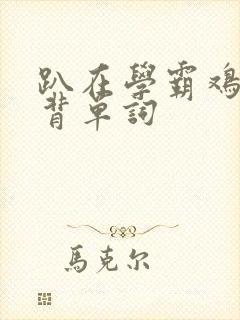 趴在學霸
背單詞
馬克尔